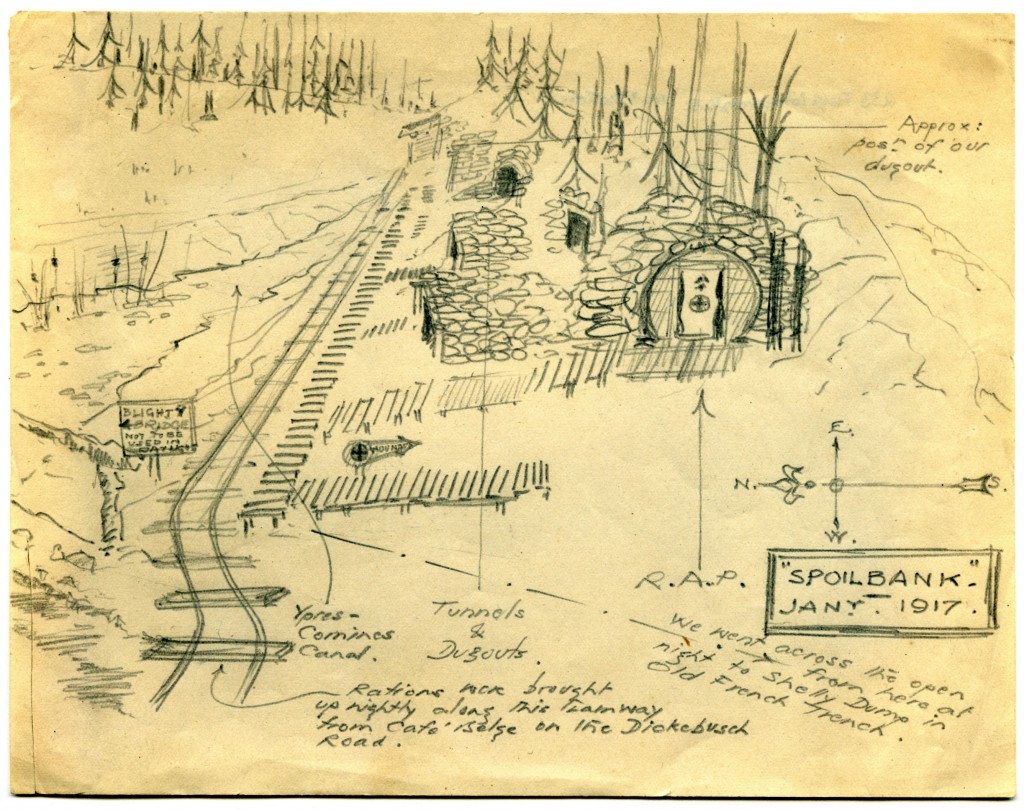 Approx:
posn of our
dugout.
BLIGHTY
BRIDGE
NOT TO BE
USED IN
E.
N.
S.
W.
R.A.P.
"SPOILBANK"
JANY 1917.
Ypres-
Comines
Canal.
Tunnels
&
Dugouts.
We went across the open
from here at
night to Shelly Dump in
Old French Trench.
Rations were brought
up nightly along this Tramway
from Café Belge on the Dickebusch
Road.